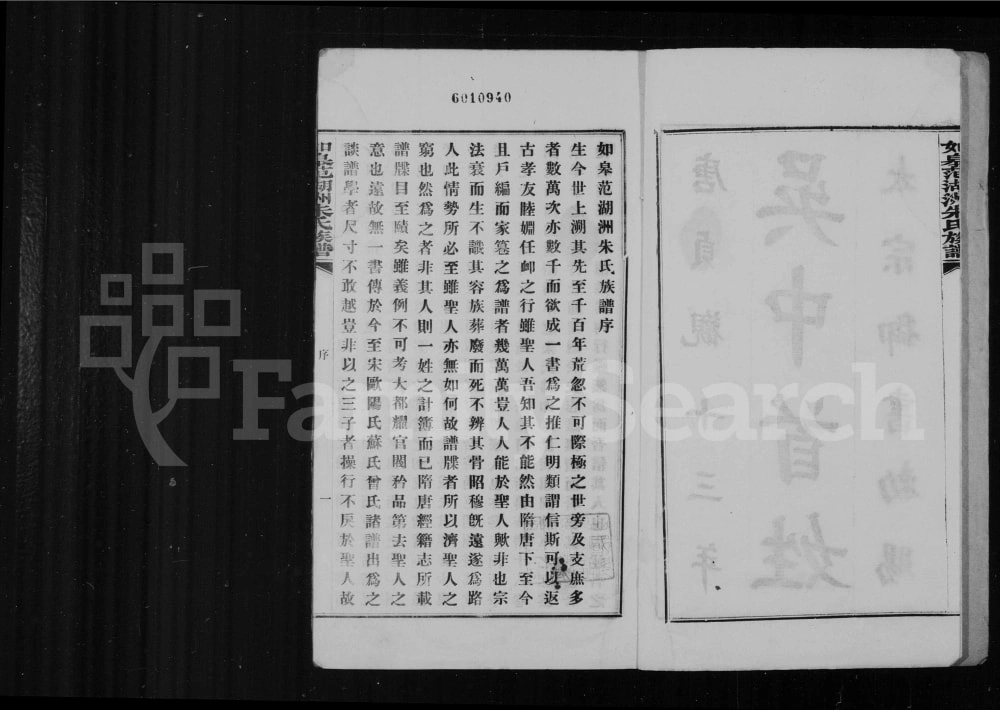 6010940
如皋范湖洲朱氏族譜
本宗御書勑賜
吳中首姓
唐貞觀十三年
如皋范湖洲朱氏族譜序
生今世上溯其先至千百年荒忽不可際極之世旁及支庶多
者數萬次亦數千而欲成一書爲之推仁明類謂信斯可以返
古孝友睦婣任卹之行雖聖人吾知其不能然由隋唐下至今
且戶編而家籑之爲譜者幾萬萬豈人人能於聖人歟非也宗
法衰而生不識其容族葬廢而死不辨其骨昭穆旣遠遂爲路
人此情勢所必至雖聖人亦無如何故譜牒者所以濟聖人之
窮也然爲之者非其人則一姓之計簿而已隋唐經籍志所載
譜牒目至賾矣雖義例不可考大都耀官閥矜品第去聖人之
意也遠故無一書傳於今至宋歐陽氏蘇氏曾氏諸譜出爲之
談譜學者尺寸不敢越豈非以之三子者操行不戾於聖人故
如皋范湖洲朱氏族譜
序
一
FamilySearch